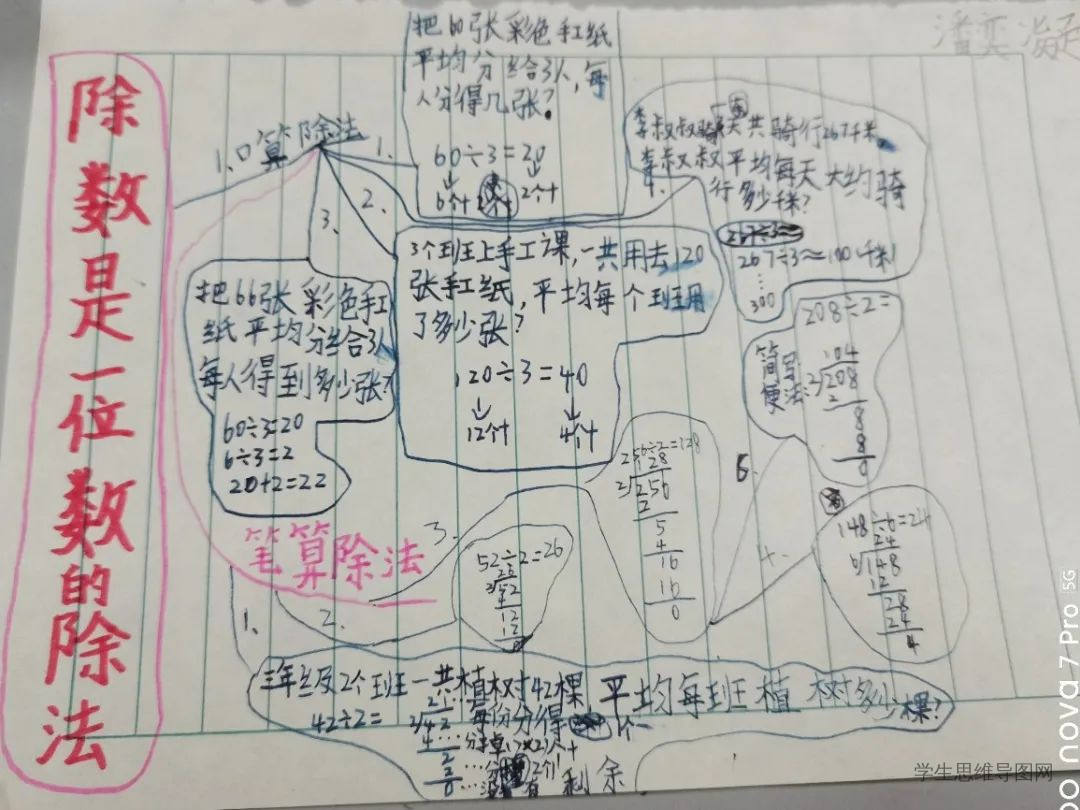 潘奕凝
除数是一位数的除法
1、口算除法
1.
把60张彩色手工纸
平均分给3人,每
人分得几张?
60÷3=20
6个十
2个十
李叔叔平均每天大约骑
行多少千米?
4.
267÷3≈100(千米)
300
2.
3个班上手工课,一共用去120
张手工纸,平均每个班用
了多少张?
120÷3=40
12个十 4个十
3.
把66张彩色手工
纸平均分给3人
每人得到多少张?
60÷3=20
6÷3=2
20+2=22
笔算除法
1、
三年级2个班一共植树42棵 平均每班植树多少棵?
42÷2=
21
2
42
4
2
2
0
每份分得
个
剩余
2.
52÷2=26
26
2
52
4
12
12
0
3.
256÷2=128
128
2
256
2
5
4
16
16
0
4.
148÷6=24
24
6
148
12
28
24
4
6.
208÷2=
简便写法:
104
2
208
2
8
8
0
学生思维导图网
nova 7 Pro 5G